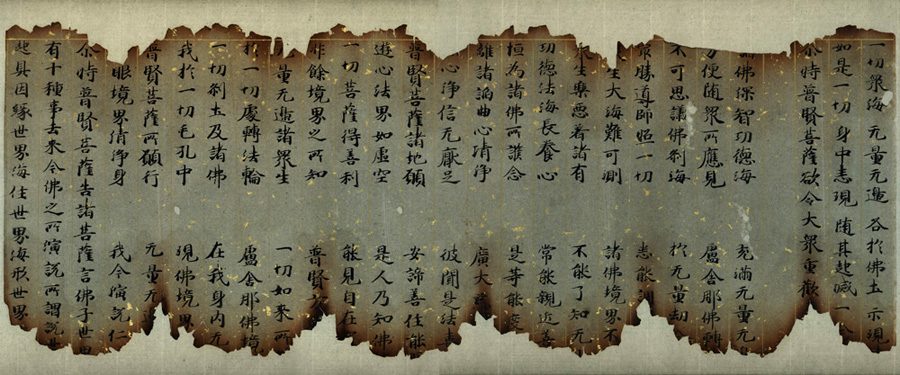 一切眾海 无量无邊 各於佛土 示現
如是一切 身中悉現 随其起滅 一
尒時普賢菩薩欲令大眾重歡
佛深智功德海 充滿无量无
方便随眾所應見 盧舍那佛轉
不可思議佛刹海 於无量劫
勝導師 一切 悉能調
生大海難可測 諸佛境界不
眾生樂 着諸有 不能了知无
功德法海長養心 常能親近善
恒為諸佛所護念 是等能
離諸諂曲心清淨 廣大
心淨信无猒足 彼聞是法
普賢菩薩諸地願 安諦善住能
遊心法界如虛空 是人乃知佛
一切菩薩得善利 能見自在
餘境界之所知 普賢
量无邊諸眾生 一切如来所
於一切處轉法輪 盧舍那佛境
一切刹土及諸佛 在我身内无
我於一切毛孔中 現佛境界
普賢菩薩所願行 无量无
眼境界清淨身 我今演說仁
尒時普賢菩薩告諸菩薩言佛子世
有十種事去来今佛之所演說所謂說世
起具因緣世界海住世界海形世界